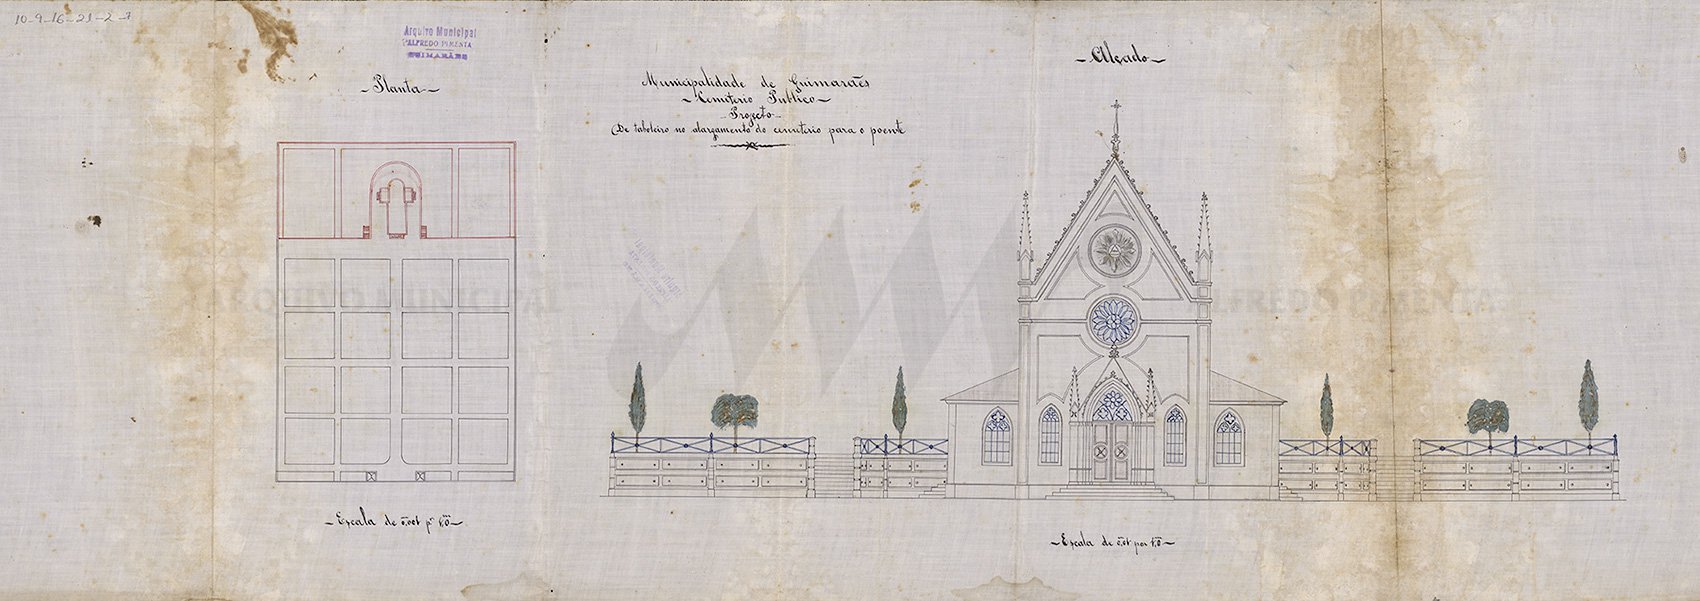 10-9-16-21-2-7
Arquivo Municipal
"ALFREDO PIMENTA
GUIMARÃES
- Planta -
Municipalidade de Guimarães
- Cemiterio Publico -
- Projecto -
De taboleiro no alargamento do cemiterio para o poente
- Alçado -
ARQUIVO MUNICIPAL
ALFREDO PIMENTA
- Escala de 0,001 pr 1,00 -
- Escala de 0,01 por 1,0 -